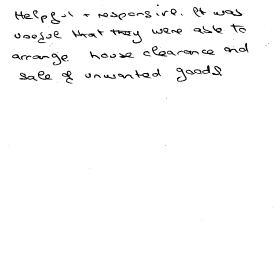 Helpful + responsive. It was
useful that they were able to
arrange house clearance and
sale of unwanted goods